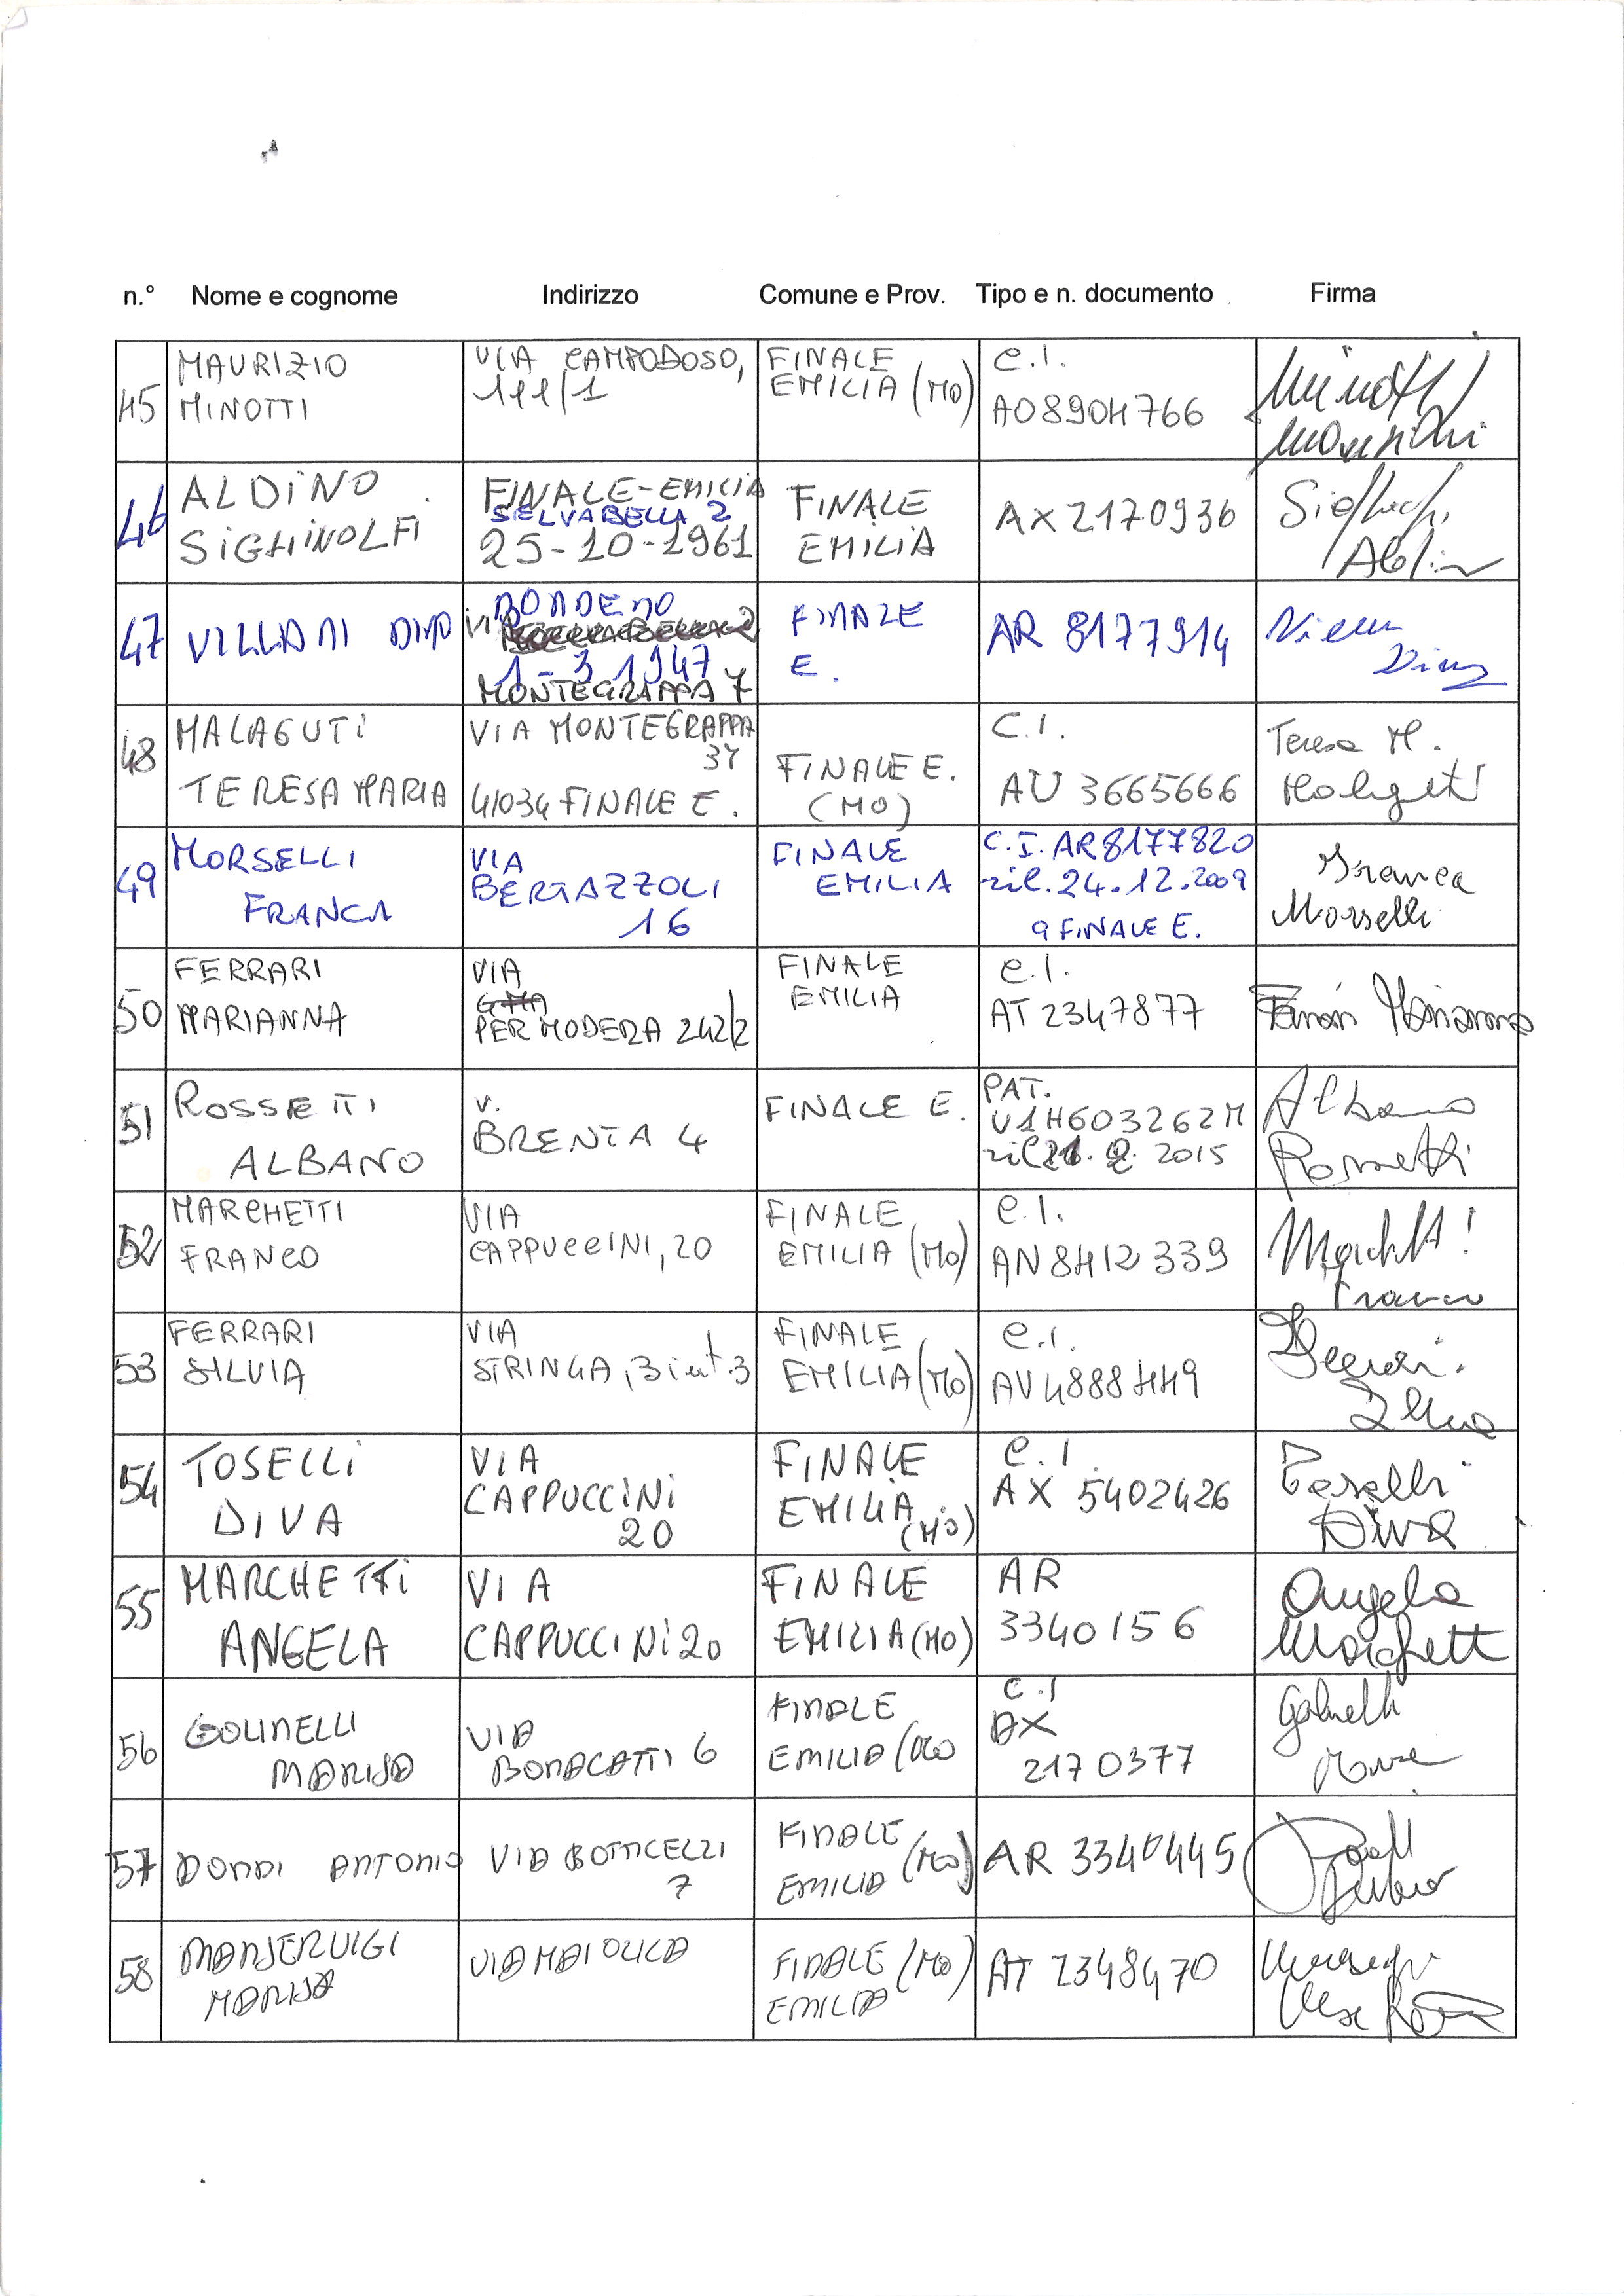 n.° Nome e cognome Indirizzo Comune e Prov. Tipo e n. documento Firma
45
MAURIZIO
MINOTTI
VIA CAMPODOSO,
111/1
FINALE
EMILIA (MO)
C.I.
AO8904766
Minotti
Maurizio
46
ALDINO
SIGHINOLFI
FINALE-EMILIA
SELVABELLA 2
25-10-1961
FINALE
EMILIA
AX 2170936
47
VILLANI DINO
VIA
BONDENO
1-3 1947
MONTEGRAPPA 7
FINALE
E.
AR 8177914
48
MALAGUTI
TERESA MARIA
VIA MONTEGRAPPA
37
41034 FINALE E.
FINALE E.
(MO)
C.I.
AU 3665666
Teresa M.
Malaguti
49
MORSELLI
FRANCA
VIA
BERGAZZOLI
16
FINALE
EMILIA
C.I. AR8177820
ril. 24.12.2009
a FINALE E.
Franca
Morselli
50
FERRARI
MARIANNA
VIA
PER MODENA 242/2
FINALE
EMILIA
C.I.
AT 2347877
Ferrari Marianna
51
ROSSETTI
ALBANO
V.
BRENTA 4
FINALE E.
PAT.
U1H603262M
ril 2015
Albano
Rossetti
52
MARCHETTI
FRANCO
VIA
CAPPUCCINI, 20
FINALE
EMILIA (MO)
C.I.
AN8412339
Marchetti
Franco
53
FERRARI
SILVIA
VIA
STRINGA, 3 int. 3
FINALE
EMILIA (MO)
C.I.
AV4888449
Ferrari
Silvia
54
TOSELLI
DIVA
VIA
CAPPUCCINI
20
FINALE
EMILIA
(MO)
C.I.
AX 5402426
Toselli
Diva
55
MARCHETTI
ANGELA
VIA
CAPPUCCINI 20
FINALE
EMILIA (MO)
AR
3340156
Angela
Marchetti
56
GOLINELLI
MARISA
VIA
BONACATTI 6
FINALE
EMILIA (MO
C.I
AX
2170377
57
DONDI ANTONIO
VIA BOTTICELLI
7
FINALE
EMILIA (MO)
AR 3340445
58
MANSERVIGI
MARISA
VIA MAIOLICA
FINALE (MO)
EMILIA
AT 2348470